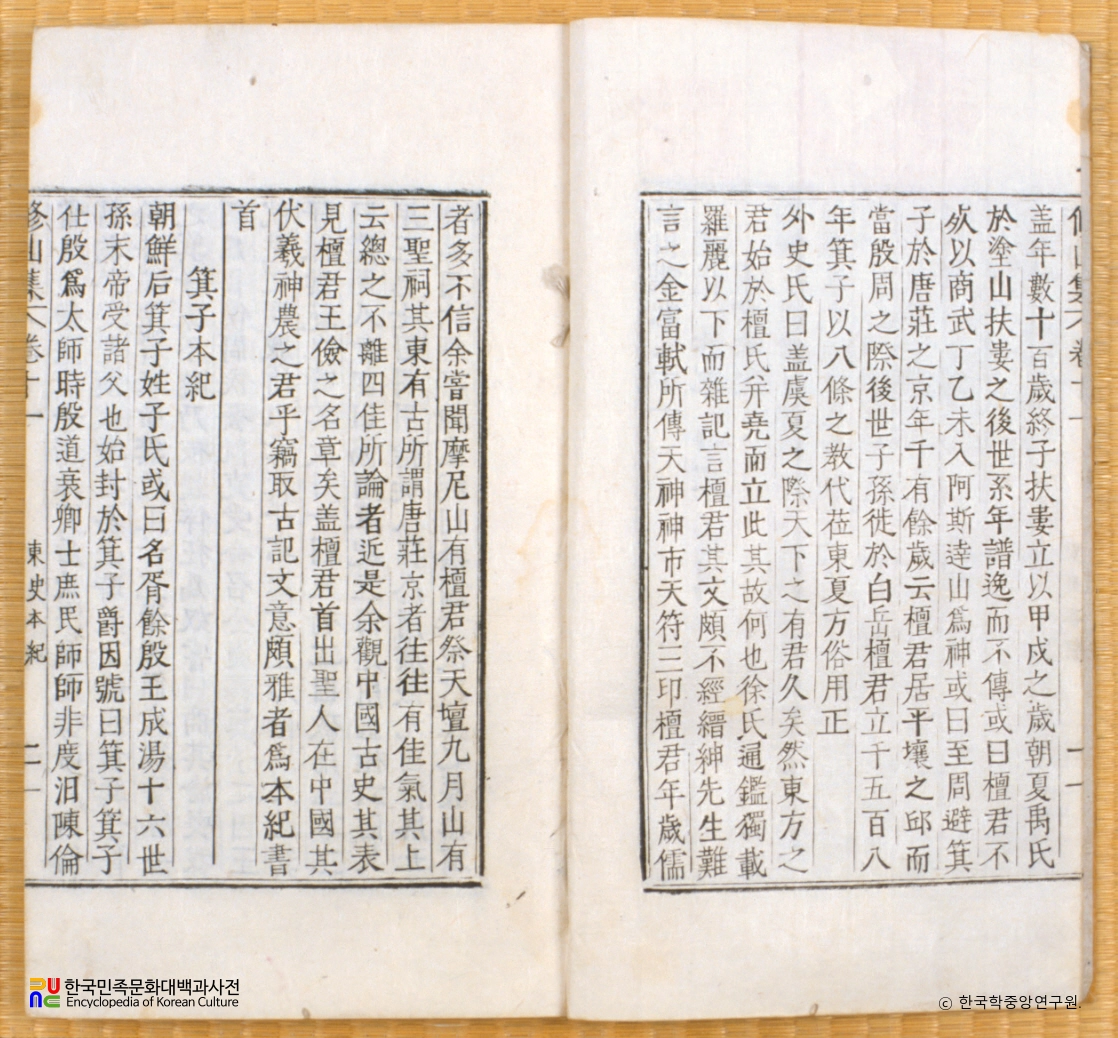 修山集 卷十一
盖年數十百歲終子扶婁立以甲戌之歲朝夏禹氏
於塗山扶婁之後世系年譜逸而不傳或曰檀君不
死以商武丁乙未入阿斯達山爲神或曰至周避箕
子於唐莊之京年千有餘歲云檀君居平壤之邱而
當殷周之際後世子孫徙於白岳檀君立千五百八
年箕子以八條之敎代莅東夏方俗用正
外史氏曰盖虞夏之際天下之有君久矣然東方之
君始於檀氏幷堯而立此其故何也徐氏通鑑獨載
羅麗以下而雜記言檀君其文頗不經縉紳先生難
言之金富軾所傳天神神市天符三印檀君年歲儒
者多不信余嘗聞摩尼山有檀君祭天壇九月山有
三聖祠其東有古所謂唐莊京者往往有佳氣其上
云總之不離四佳所論者近是余觀中國古史其表
見檀君王儉之名章矣盖檀君首出聖人在中國其
伏羲神農之君乎竊取古記文意頗雅者爲本紀書
首
箕子本紀
朝鮮后箕子姓子氏或曰名胥餘殷王成湯十六世
孫末帝受諸父也始封於箕子爵因號曰箕子箕子
仕殷爲太師時殷道衰卿士庶民師師非度汨陳倫
修山集 卷十一 東史本紀 二
한국민족문화대백과사전
Encyclopedia of Korean Culture
© 한국학중앙연구원.